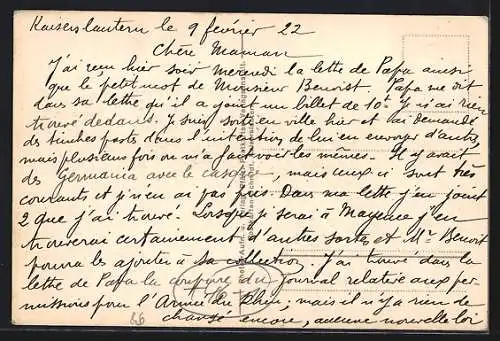 Kaiserslautern le 9 février 22
Chère Maman
J'ai reçu hier soir mercredi la lettre de Papa ainsi
que le petit mot de Monsieur Benoist. Papa me dit
dans sa lettre qu'il a joint un billet de 10f. Je n'ai rien
trouvé dedans. Je suis sorti en ville hier et j'ai demandé
des timbres postes dans l'intention de lui en envoyer d'autres,
mais plusieurs fois on m'a fait voir les mêmes. Il y avait
des Germania avec le casque, mais ceux ci sont très
courants et je n'en ai pas pris. Dans ma lettre j'en joint
2 que j'ai trouvé. Lorsque je serai à Mayence j'en
trouverai certainement d'autres sortes et Mr Benoist
pourra les ajouter à sa collection. J'ai trouvé dans la
lettre de Papa la coupure du journal relative aux per-
missions pour l'Armée du Rhin; mais il n'y a rien de
changé encore, aucune nouvelle loi